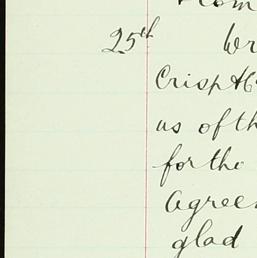 from
25th Wr
Crisp & Co
us of th
for the
Agree
glad